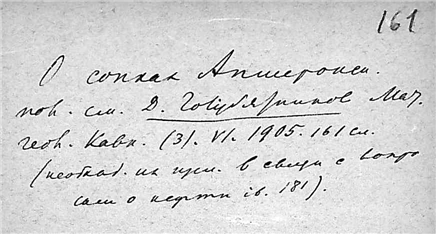 161
О сопках Апшеронск.
пов. см. Д. Голубятников Мат.
геол. Кавк. (3). VI. 1905. 161 сл.
(необход. их изл. в связи с вопро
сами о нефти ib. 181).